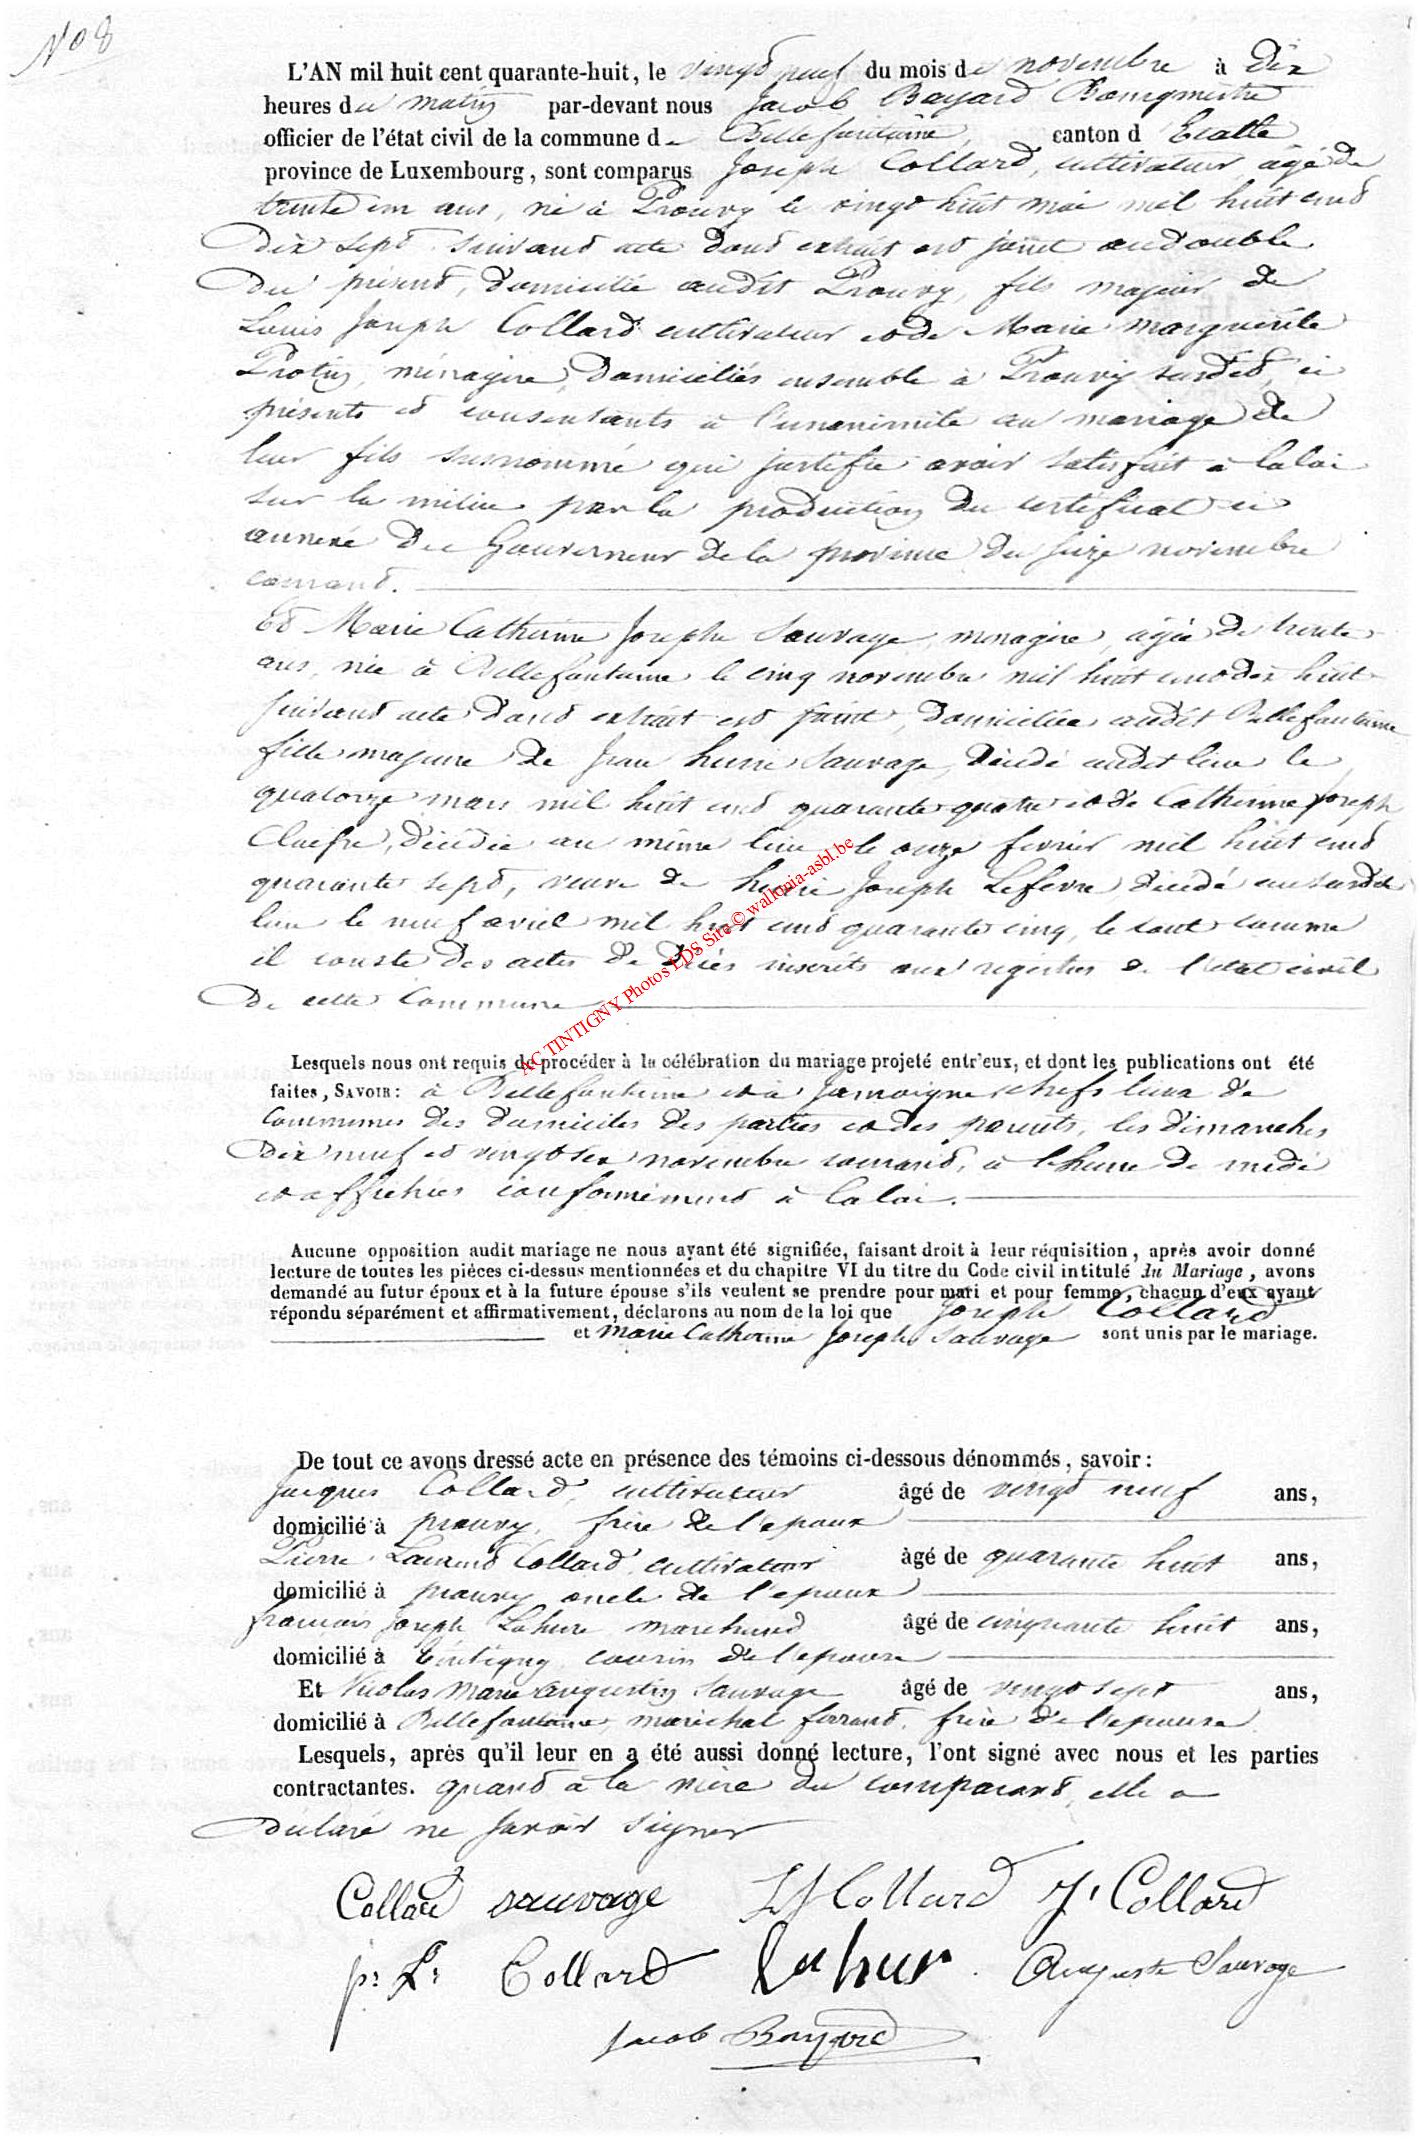 No 8
L'AN mil huit cent quarante-huit, le vingt neuf du mois de novembre à dix
heures du matin par-devant nous Jacob Bayard Bourgmestre
officier de l'état civil de la commune de Bellefontaine, canton d'Etalle
province de Luxembourg, sont comparus Joseph Collard, cultivateur, âgé de
trente un ans, né à Prouvy le vingt huit mai mil huit cent
dix sept suivant acte dont extrait est joint au double
du présent, domicilié audit Prouvy, fils majeur de
Louis Joseph Collard cultivateur et de Marie Marguerite
Protin, ménagère, domiciliés ensemble à Prouvy susdit, ci
présents et consentants à l'unanimité au mariage de
leur fils susnommé qui justifie avoir satisfait à la loi
sur la milice par la production du certificat ci
annexé du Gouverneur de la province du seize novembre
courant.
et Marie Catherine Joseph Sauvage, menagère, âgée de trente
ans, née à Bellefontaine le cinq novembre mil huit cent dix huit
suivant acte dont extrait est joint, domiciliée audit Bellefontaine
fille majeure de Jean henri Sauvage, décédé audit lieu le
quatorze mars mil huit cent quarante quatre et de Catherine Joseph
décédée au même lieu le onze fevrier mil huit cent
quarante sept, veuve de henri Joseph Lefevre, décédé au susdit
lieu le neuf avril mil huit cent quarante cinq, le tout comme
il conste des actes de décès inscrits aux registres de l'état civil
de cette Commune
AC TINTIGNY Photos EDS Site © wallonia-asbl.be
Lesquels nous ont requis de procéder à la célébration du mariage projeté entr'eux, et dont les publications ont été
faites, SAVOIR: à Bellefontaine et à Jamoigne chefs lieux de
Communes des domiciles des parties et des parents, les dimanches
dix neuf et vingt six novembre courant, à l'heure de midi
et affichées conformément à la loi.
Aucune opposition audit mariage ne nous ayant été signifiée, faisant droit à leur réquisition, après avoir donné
lecture de toutes les pièces ci-dessus mentionnées et du chapitre VI du titre du Code civil intitulé du Mariage, avons
demandé au futur époux et à la future épouse s'ils veulent se prendre pour mari et pour femme, chacun d'eux ayant
répondu séparément et affirmativement, déclarons au nom de la loi que Joseph Collard
et Marie Catherine Joseph Sauvage sont unis par le mariage.
De tout ce avons dressé acte en présence des témoins ci-dessous dénommés, savoir:
Jacques Collard, cultivateur âgé de vingt neuf ans,
domicilié à prouvy, frère de l'epoux
Pierre Laurent Collard, cultivateur âgé de quarante huit ans,
domicilié à prouvy oncle de l'epoux
francois Joseph Lahure marchand âgé de cinquante huit ans,
domicilié à tintigny cousin de l'epouse
Et Nicolas Marie augustin Sauvage âgé de vingt sept ans,
domicilié à Bellefontaine, maréchal ferrant, frère de l'epouse
Lesquels, après qu'il leur en a été aussi donné lecture, l'ont signé avec nous et les parties
contractantes. quant à la mère du comparant, elle a
déclaré ne savoir signer
Collard sauvage LJ Collard J. Collard
p: L: Collard Lahur Auguste Sauvage
Jacob Bayard